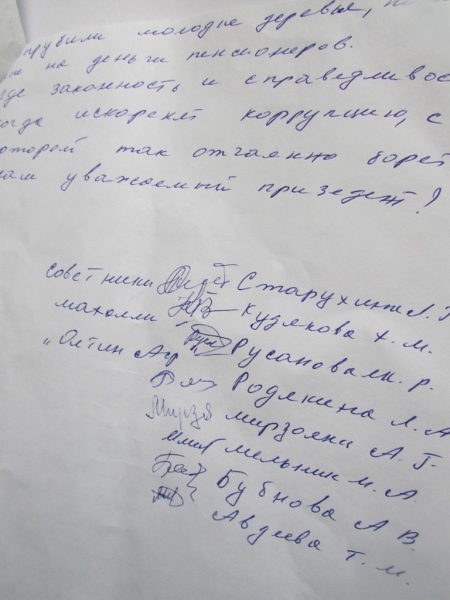 рубили молодые деревья,
на деньги пенсионеров.
где законность и справедливос
огда искоренят коррупцию, с
оторой так отчаянно борет
нам уважаемый призедент?
Советники Старухина Л. Г
махалли Кудякова Х. М.
„Олтин Русанова р.
Родякина Л. А
Мирзоян А. Г.
Мельник М. А.
Бубнова А В.
Авдеева Т. М.